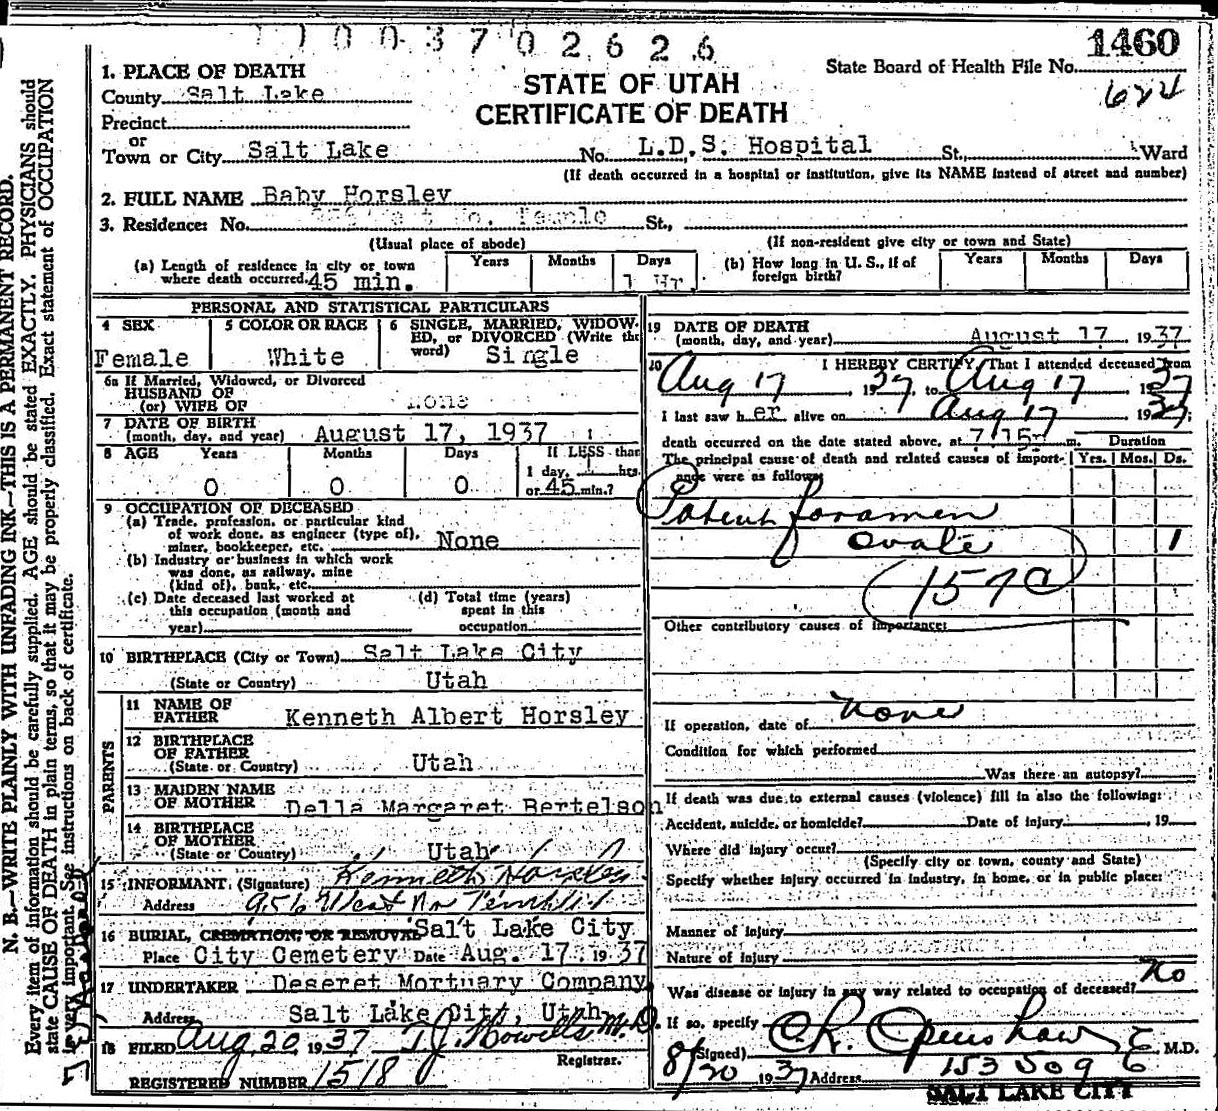 1100370 2626
1460
State Board of Health File No.
624
STATE OF UTAH
CERTIFICATE OF DEATH
1. PLACE OF DEATH
County Salt Lake
Precinct
or
Town or City Salt Lake No. L.D.S. Hospital St., Ward
(If death occurred in a hospital or institution, give its NAME instead of street and number)
2. FULL NAME Baby Horsley
3. Residence: No. 956 West No. Temple St.,
(Usual place of abode) (If non-resident give city or town and State)
(a) Length of residence in city or town where death occurred. 45 min. Years Months Days 1 Hr.
(b) How long in U. S., if of foreign birth? Years Months Days
PERSONAL AND STATISTICAL PARTICULARS
4 SEX Female
5 COLOR OR RACE White
6 SINGLE, MARRIED, WIDOWED, or DIVORCED (Write the word) Single
6a If Married, Widowed, or Divorced
HUSBAND OF
(or) WIFE OF None
7 DATE OF BIRTH
(month, day, and year) August 17, 1937
8 AGE Years Months Days If LESS than
1 day, hrs.
0 0 0 or 45 min.?
9 OCCUPATION OF DECEASED
(a) Trade, profession, or particular kind
of work done, as engineer (type of),
miner, bookkeeper, etc. None
(b) Industry or business in which work
was done, as railway, mine
(kind of), bank, etc.
(c) Date deceased last worked at
this occupation (month and
year)
(d) Total time (years)
spent in this
occupation
10 BIRTHPLACE (City or Town) Salt Lake City
(State or Country) Utah
PARENTS
11 NAME OF
FATHER Kenneth Albert Horsley
12 BIRTHPLACE
OF FATHER
(State or Country) Utah
13 MAIDEN NAME
OF MOTHER Della Margaret Bertelson
14 BIRTHPLACE
OF MOTHER
(State or Country) Utah
15 INFORMANT. (Signature) Kenneth Horsley
Address 956 West No Temple
16 BURIAL, CREMATION, OR REMOVAL Salt Lake City
Place City Cemetery Date Aug. 17, 1937
17 UNDERTAKER Deseret Mortuary Company
Address Salt Lake City, Utah
18 FILED Aug 20, 1937 T.J. Howells M.D.
Registrar.
REGISTERED NUMBER 1518
19 DATE OF DEATH
(month, day, and year) August 17, 1937
20 I HEREBY CERTIFY, That I attended deceased from
Aug 17, 1937, to Aug 17 1937
I last saw her alive on Aug 17 1937;
death occurred on the date stated above, at 7:15 m. Duration
The principal cause of death and related causes of importance were as follows: Yrs. Mos. Ds.
Patent foramen
ovale 1
157C
Other contributory causes of importance:
If operation, date of None
Condition for which performed
Was there an autopsy?
If death was due to external causes (violence) fill in also the following:
Accident, suicide, or homicide? Date of injury , 19
Where did injury occur?
(Specify city or town, county and State)
Specify whether injury occurred in industry, in home, or in public place:
Manner of injury
Nature of injury
Was disease or injury in any way related to occupation of deceased? No
If so, specify
(Signed) C.R. Openshaw M.D.
8/20 1937 Address 153 So 9 E
SALT LAKE CITY
N. B.—WRITE PLAINLY WITH UNFADING INK—THIS IS A PERMANENT RECORD.
Every item of information should be carefully supplied. AGE should be stated EXACTLY. PHYSICIANS should
state CAUSE OF DEATH in plain terms, so that it may be properly classified. Exact statement of OCCUPATION
is very important. See instructions on back of certificate.